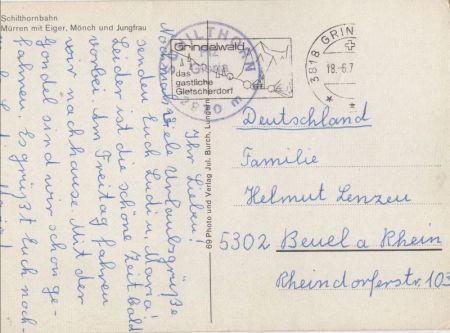 Schilthornbahn
Mürren mit Eiger, Mönch und Jungfrau
Ihr Lieben!
Nochmals viele Urlaubsgrüße
senden Euch Ludi u. Maria!
Leider ist die schöne Zeit bald
vorbei. Am Freitag fahren
wir nachhause. Mit der
Gondel sind wir schon ge-
fahren. Es grüßt Euch noch-
69 Photo und Verlag Jul. Burch, Lungern
SCHILTHORN
PIZ
GLORIA
2970 m
Grindelwald
das
gastliche
Gletscherdorf
3818 GRIN
18.-6.7
Deutschland
Familie
Helmut Lenzen
5302 Beuel a Rhein
Rheindorferstr. 103